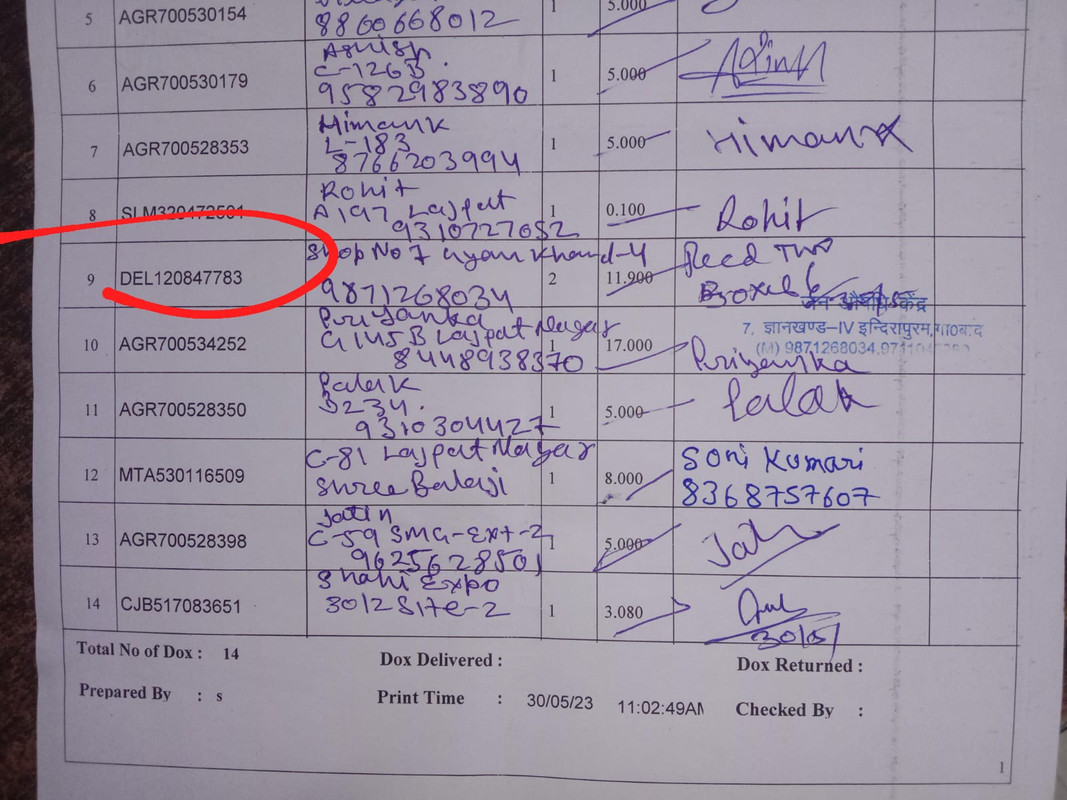 5 AGR700530154 8860668012 1 5.000
6 AGR700530179 Ashish C-126B. 9582983890 1 5.000
7 AGR700528353 Himank L-183 8766203994 1 5.000 Himank
8 SLM320472501 Rohit A197 Lajpat 9310727052 1 0.100 Rohit
9 DEL120847783 Shop No 7 Gyan Khand-4 9871268034 2 11.900 Recd Two Boxes
जन औषधि केंद्र
7, ज्ञानखण्ड-IV इन्दिरापुरम, गा०बाद
(M) 9871268034,
10 AGR700534252 Priyanka G145B Lajpat Nagar 8448938370 1 17.000 Priyanka
11 AGR700528350 Palak B234. 9310304427 1 5.000 Palak
12 MTA530116509 C-81 Lajpat Nagar Shree Balaji 1 8.000 Soni Kumari 8368757607
13 AGR700528398 Jatin C-59 SMG-Ext-2 9625628501 1 5.000 Jatin
14 CJB517083651 Shahi Expo 3012 Site-2 1 3.080 30/05/
Total No of Dox : 14 Dox Delivered : Dox Returned :
Prepared By : s Print Time : 30/05/23 11:02:49AM Checked By :
1